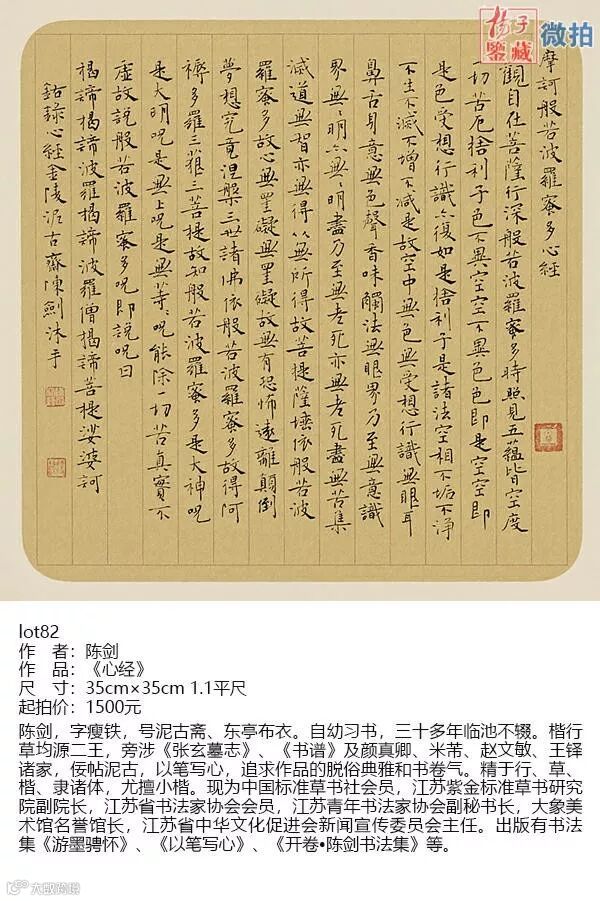 扬子
鉴藏
微拍
摩訶般若波羅蜜多心經
觀自在菩薩行深般若波羅蜜多時照見五蘊皆空度
一切苦厄捨利子色不異空空不異色色即是空空即
是色受想行識亦復如是捨利子是諸法空相不垢不淨
不生不滅不增不減是故空中無色無受想行識無眼耳
鼻舌身意無色聲香味觸法無眼界乃至無意識
界無〻明亦無〻明盡乃至無老死亦無老死盡無苦集
滅道無智亦無得以無所得故菩提薩埵依般若波
羅蜜多故心無罣礙無罣礙故無有恐怖遠離顛倒
夢想究竟涅槃三世諸佛依般若波羅蜜多故得阿
耨多羅三藐三菩提故知般若波羅蜜多是大神呪
是大明呪是無上呪是無等〻呪能除一切苦真實不
虛故說般若波羅蜜多呪即說呪曰
揭諦揭諦波羅揭諦波羅僧揭諦菩提娑婆訶
錄心經金陵泥古齋陳劍沐手
lot82
作 者：陈剑
作 品：《心经》
尺 寸：35cm×35cm 1.1平尺
起拍价：1500元
陈剑，字瘦铁，号泥古斋、东亭布衣。自幼习书，三十多年临池不辍。楷行
草均源二王，旁涉《张玄墓志》、《书谱》及颜真卿、米芾、赵文敏、王铎
诸家，佞帖泥古，以笔写心，追求作品的脱俗典雅和书卷气。精于行、草、
楷、隶诸体，尤擅小楷。现为中国标准草书社会员，江苏紫金标准草书研究
院副院长，江苏省书法家协会会员，江苏青年书法家协会副秘书长，大象美
术馆名誉馆长，江苏省中华文化促进会新闻宣传委员会主任。出版有书法
集《游墨骋怀》、《以笔写心》、《开卷•陈剑书法集》等。